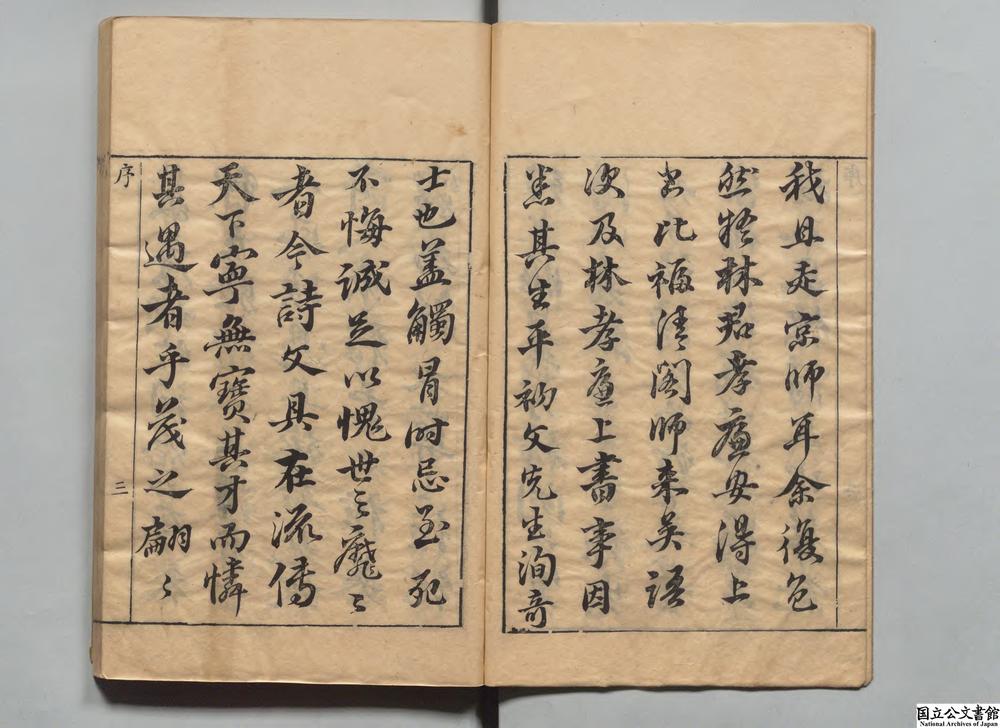 我且走宗師耳余復色
然怪林君孝廉安得上
書比福清閣師來吳語
次及林孝廉上書事因
悉其生平初文先生洵奇
士也蓋觸冒時忌至死
不悔誠足以愧世之靡〻
者今詩文具在流傳
天下寧無寶其才而憐
其遇者乎茂之翩〻
序
三
国立公文書館
National Archives of Japan